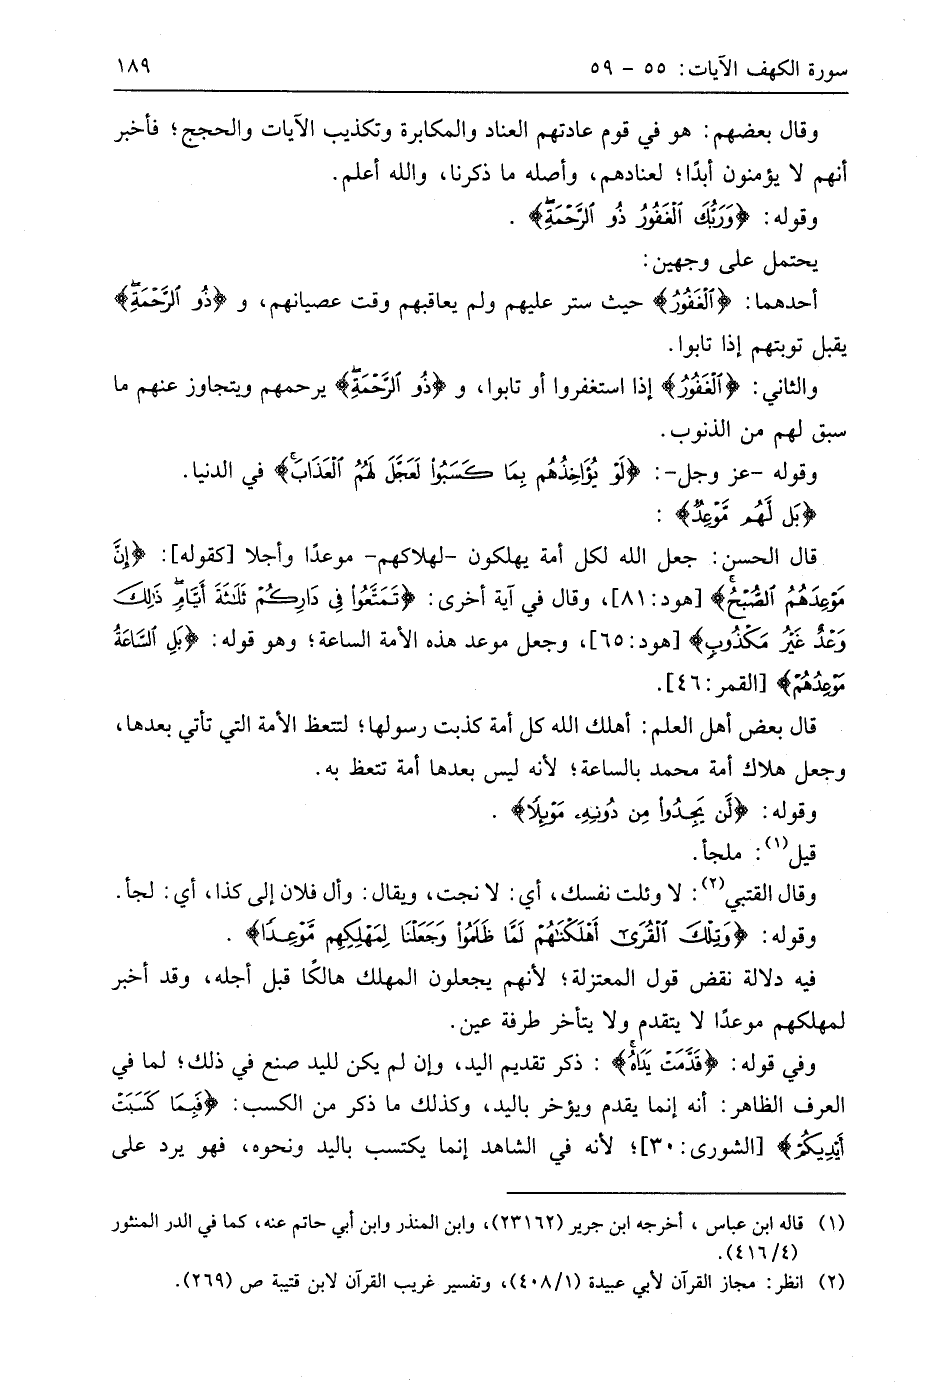 سورة الكهف الآيات: ٥٥ - ٥٩ ١٨٩
وقال بعضهم: هو في قوم عادتهم العناد والمكابرة وتكذيب الآيات والحجج؛ فأخبر
أنهم لا يؤمنون أبدًا؛ لعنادهم، وأصله ما ذكرنا، والله أعلم.
وقوله: ﴿وَرَبُّكَ ٱلْغَفُورُ ذُو ٱلرَّحْمَةِۖ﴾ .
يحتمل على وجهين:
أحدهما: ﴿ٱلْغَفُورُ﴾ حيث ستر عليهم ولم يعاقبهم وقت عصيانهم، و ﴿ذُو ٱلرَّحْمَةِۖ﴾
يقبل توبتهم إذا تابوا.
والثاني: ﴿ٱلْغَفُورُ﴾ إذا استغفروا أو تابوا، و ﴿ذُو ٱلرَّحْمَةِۖ﴾ يرحمهم ويتجاوز عنهم ما
سبق لهم من الذنوب.
وقوله -عز وجل-: ﴿لَوْ يُؤَاخِذُهُم بِمَا كَسَبُوا۟ لَعَجَّلَ لَهُمُ ٱلْعَذَابَۚ﴾ في الدنيا.
﴿بَل لَّهُم مَّوْعِدٌ﴾ :
قال الحسن: جعل الله لكل أمة يهلكون -لهلاكهم- موعدًا وأجلا [كقوله]: ﴿إِنَّ
مَوْعِدَهُمُ ٱلصُّبْحُۚ﴾ [هود: ٨١]، وقال في آية أخرى: ﴿تَمَتَّعُوا۟ فِى دَارِكُمْ ثَلَـٰثَةَ أَيَّامٍۖ ذَٰلِكَ
وَعْدٌ غَيْرُ مَكْذُوبٍ﴾ [هود: ٦٥]، وجعل موعد هذه الأمة الساعة؛ وهو قوله: ﴿بَلِ ٱلسَّاعَةُ
مَوْعِدُهُمْ﴾ [القمر: ٤٦].
قال بعض أهل العلم: أهلك الله كل أمة كذبت رسولها؛ لتتعظ الأمة التي تأتي بعدها،
وجعل هلاك أمة محمد بالساعة؛ لأنه ليس بعدها أمة تتعظ به.
وقوله: ﴿لَّن يَجِدُوا۟ مِن دُونِهِۦ مَوْئِلًا﴾ .
قيل(١): ملجأ.
وقال القتبي(٢): لا وئلت نفسك، أي: لا نجت، ويقال: وأل فلان إلى كذا، أي: لجأ.
وقوله: ﴿وَتِلْكَ ٱلْقُرَىٰٓ أَهْلَكْنَـٰهُمْ لَمَّا ظَلَمُوا۟ وَجَعَلْنَا لِمَهْلِكِهِم مَّوْعِدًا﴾ .
فيه دلالة نقض قول المعتزلة؛ لأنهم يجعلون المهلك هالكًا قبل أجله، وقد أخبر
لمهلكهم موعدًا لا يتقدم ولا يتأخر طرفة عين.
وفي قوله: ﴿قَدَّمَتْ يَدَاهُۚ﴾ : ذكر تقديم اليد، وإن لم يكن لليد صنع في ذلك؛ لما في
العرف الظاهر: أنه إنما يقدم ويؤخر باليد، وكذلك ما ذكر من الكسب: ﴿فَبِمَا كَسَبَتْ
أَيْدِيكُمْ﴾ [الشورى: ٣٠]؛ لأنه في الشاهد إنما يكتسب باليد ونحوه، فهو يرد على
(١) قاله ابن عباس ، أخرجه ابن جرير (٢٣١٦٢)، وابن المنذر وابن أبي حاتم عنه، كما في الدر المنثور
(٤/ ٤١٦).
(٢) انظر: مجاز القرآن لأبي عبيدة (١/ ٤٠٨)، وتفسير غريب القرآن لابن قتيبة ص (٢٦٩).